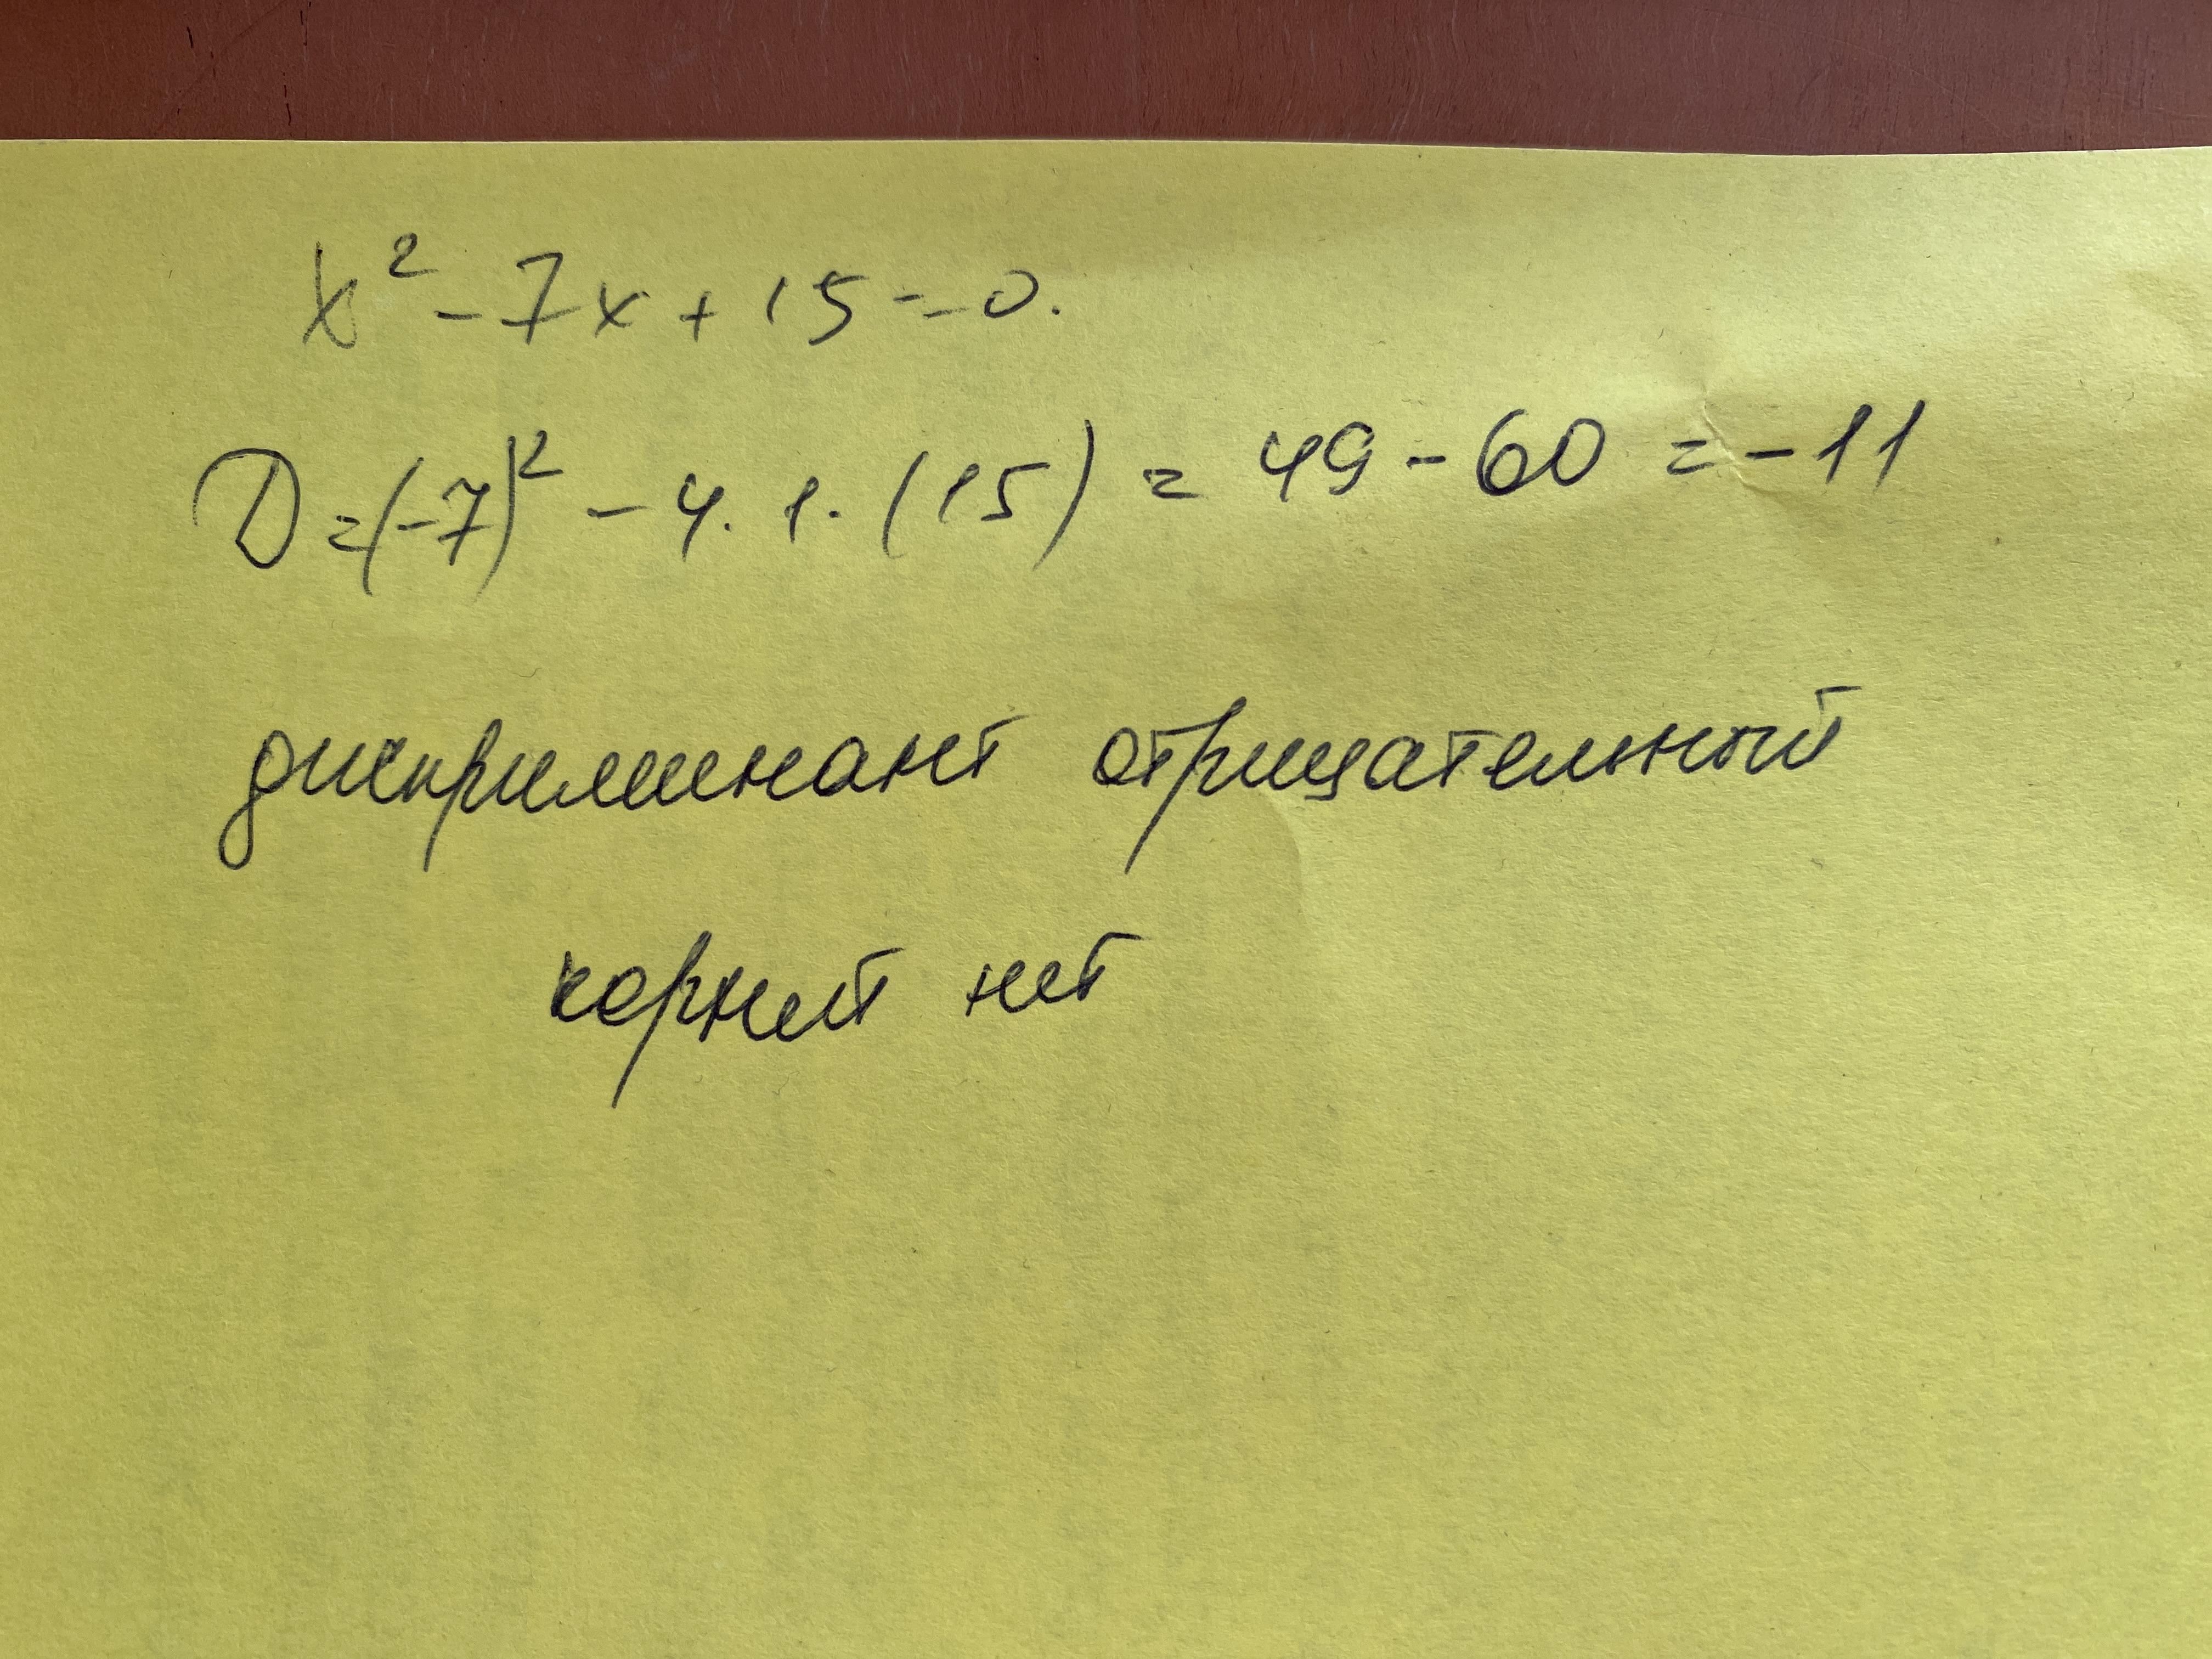 x² - 7x + 15 = 0.
D = (-7)² - 4 · 1 · (15) = 49 - 60 = -11
дискриминант отрицательный
корней нет